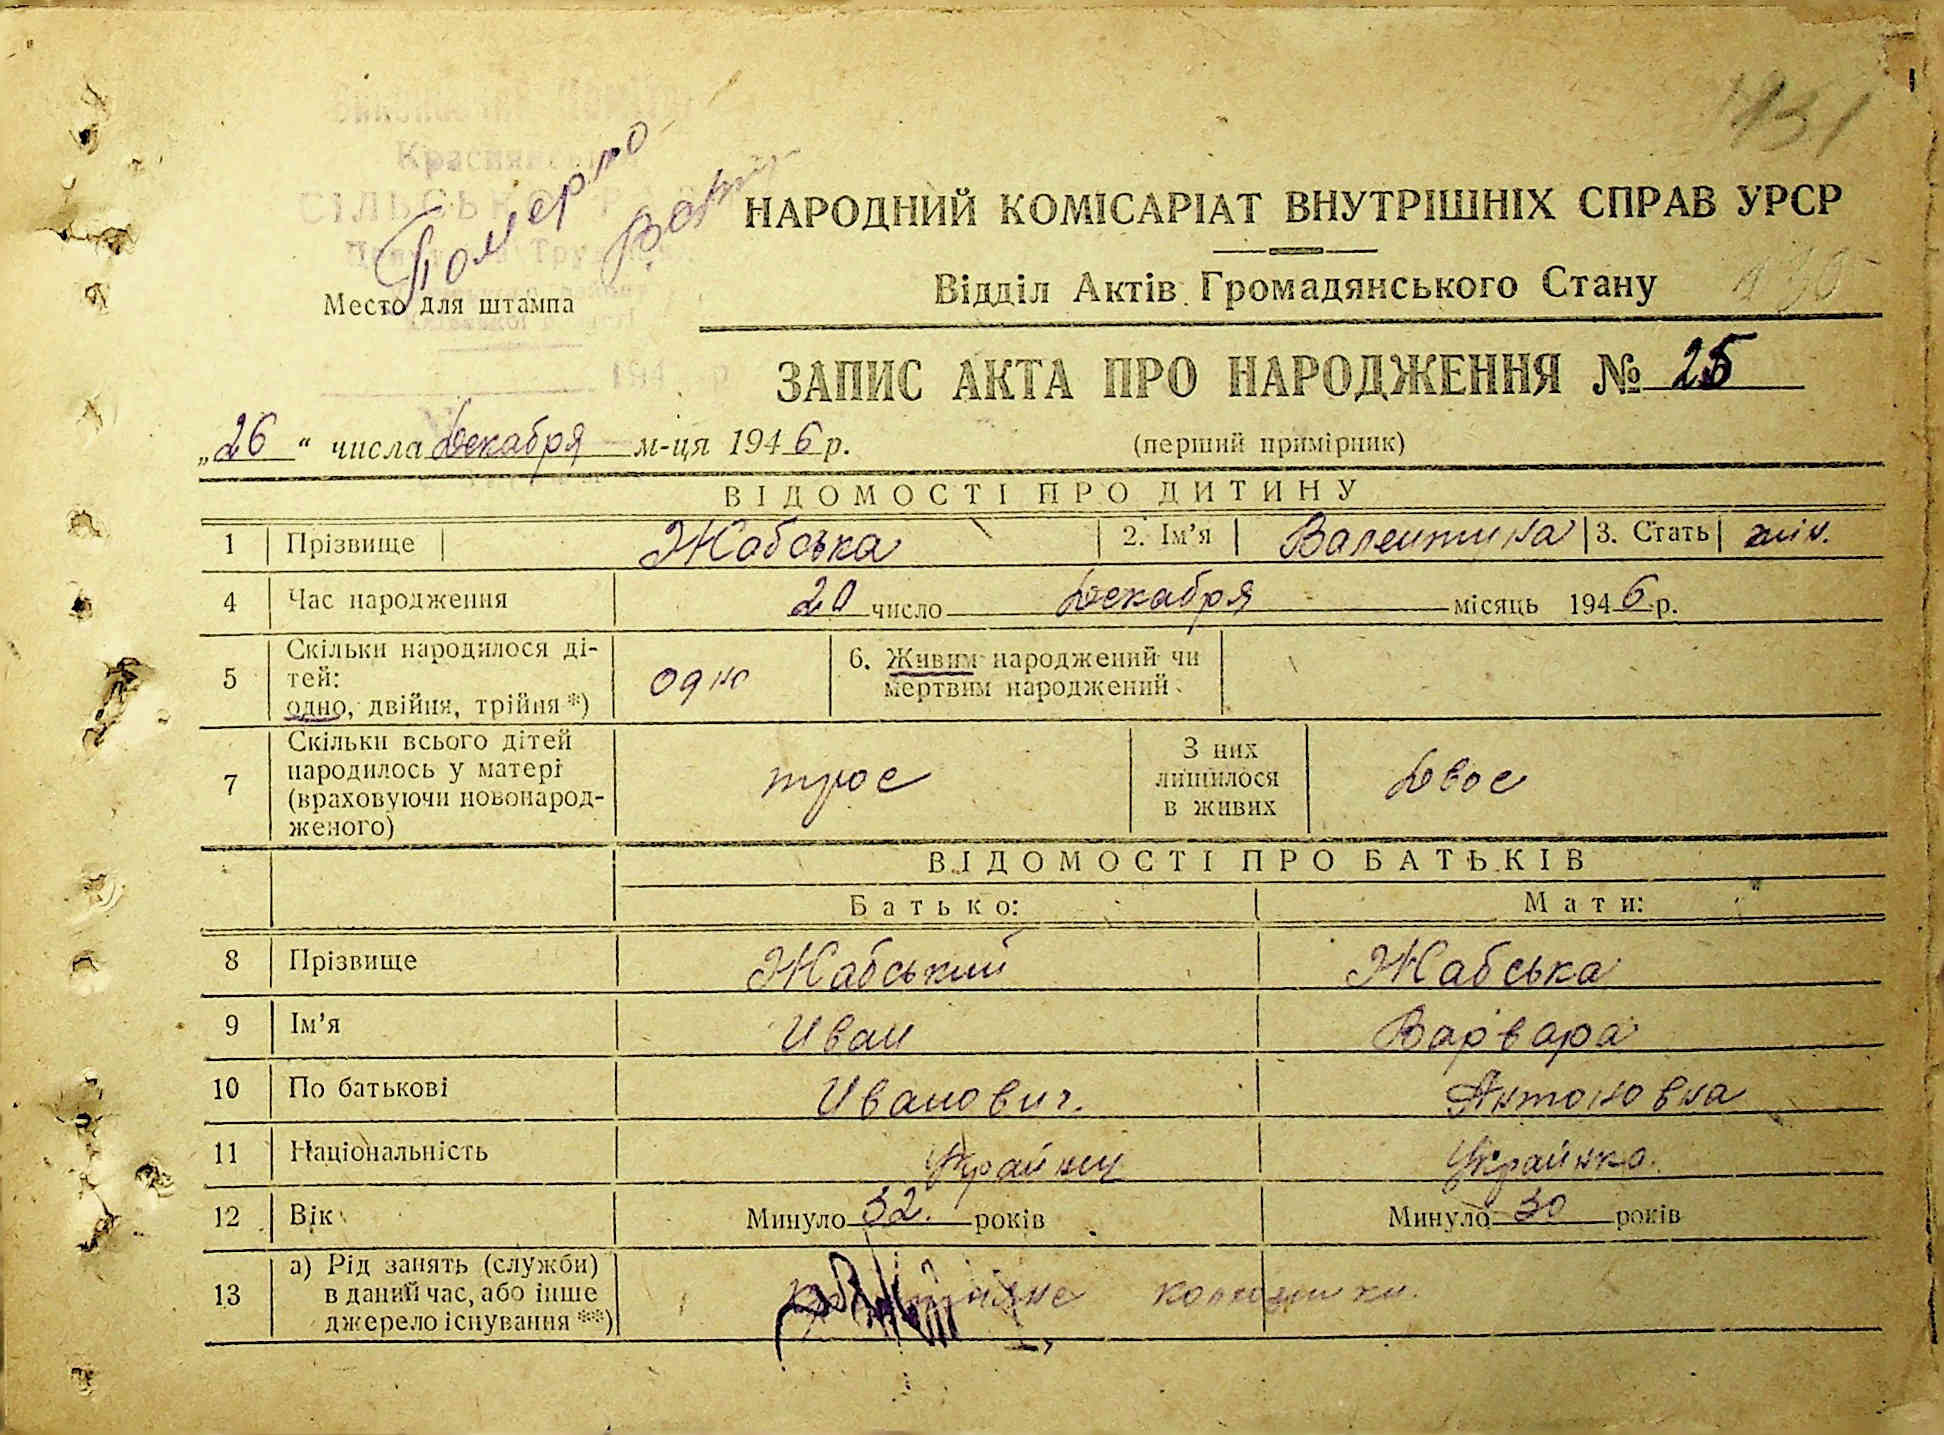 Красня
СІЛЬСЬКО
Померло
НАРОДНИЙ КОМІСАРІАТ ВНУТРІШНІХ СПРАВ УРСР
Відділ Актів Громадянського Стану
Место для штампа
194 р
ЗАПИС АКТА ПРО НАРОДЖЕННЯ № 25
„26“ числа Декабря м-ця 1946 р. (перший примірник)
ВІДОМОСТІ ПРО ДИТИНУ
1 Прізвище Жабська 2. Ім’я Валентина 3. Стать жін.
4 Час народження 20 число Декабря місяць 1946 р.
5 Скільки народилося ді-
тей:
одно, двійня, трійня *) одно 6. Живим народжений чи
мертвим народжений
7 Скільки всього дітей
народилось у матері
(враховуючи новонарод-
женого) трое З них
лишилося
в живих Двое
ВІДОМОСТІ ПРО БАТЬКІВ
Батько: Мати:
8 Прізвище Жабський Жабська
9 Ім’я Иван Варвара
10 По батькові Иванович. Антоновна
11 Національність Українец Українка.
12 Вік Минуло 32. років Минуло 30 років
13 а) Рід занять (служби)
в даний час, або інше
джерело існування **)